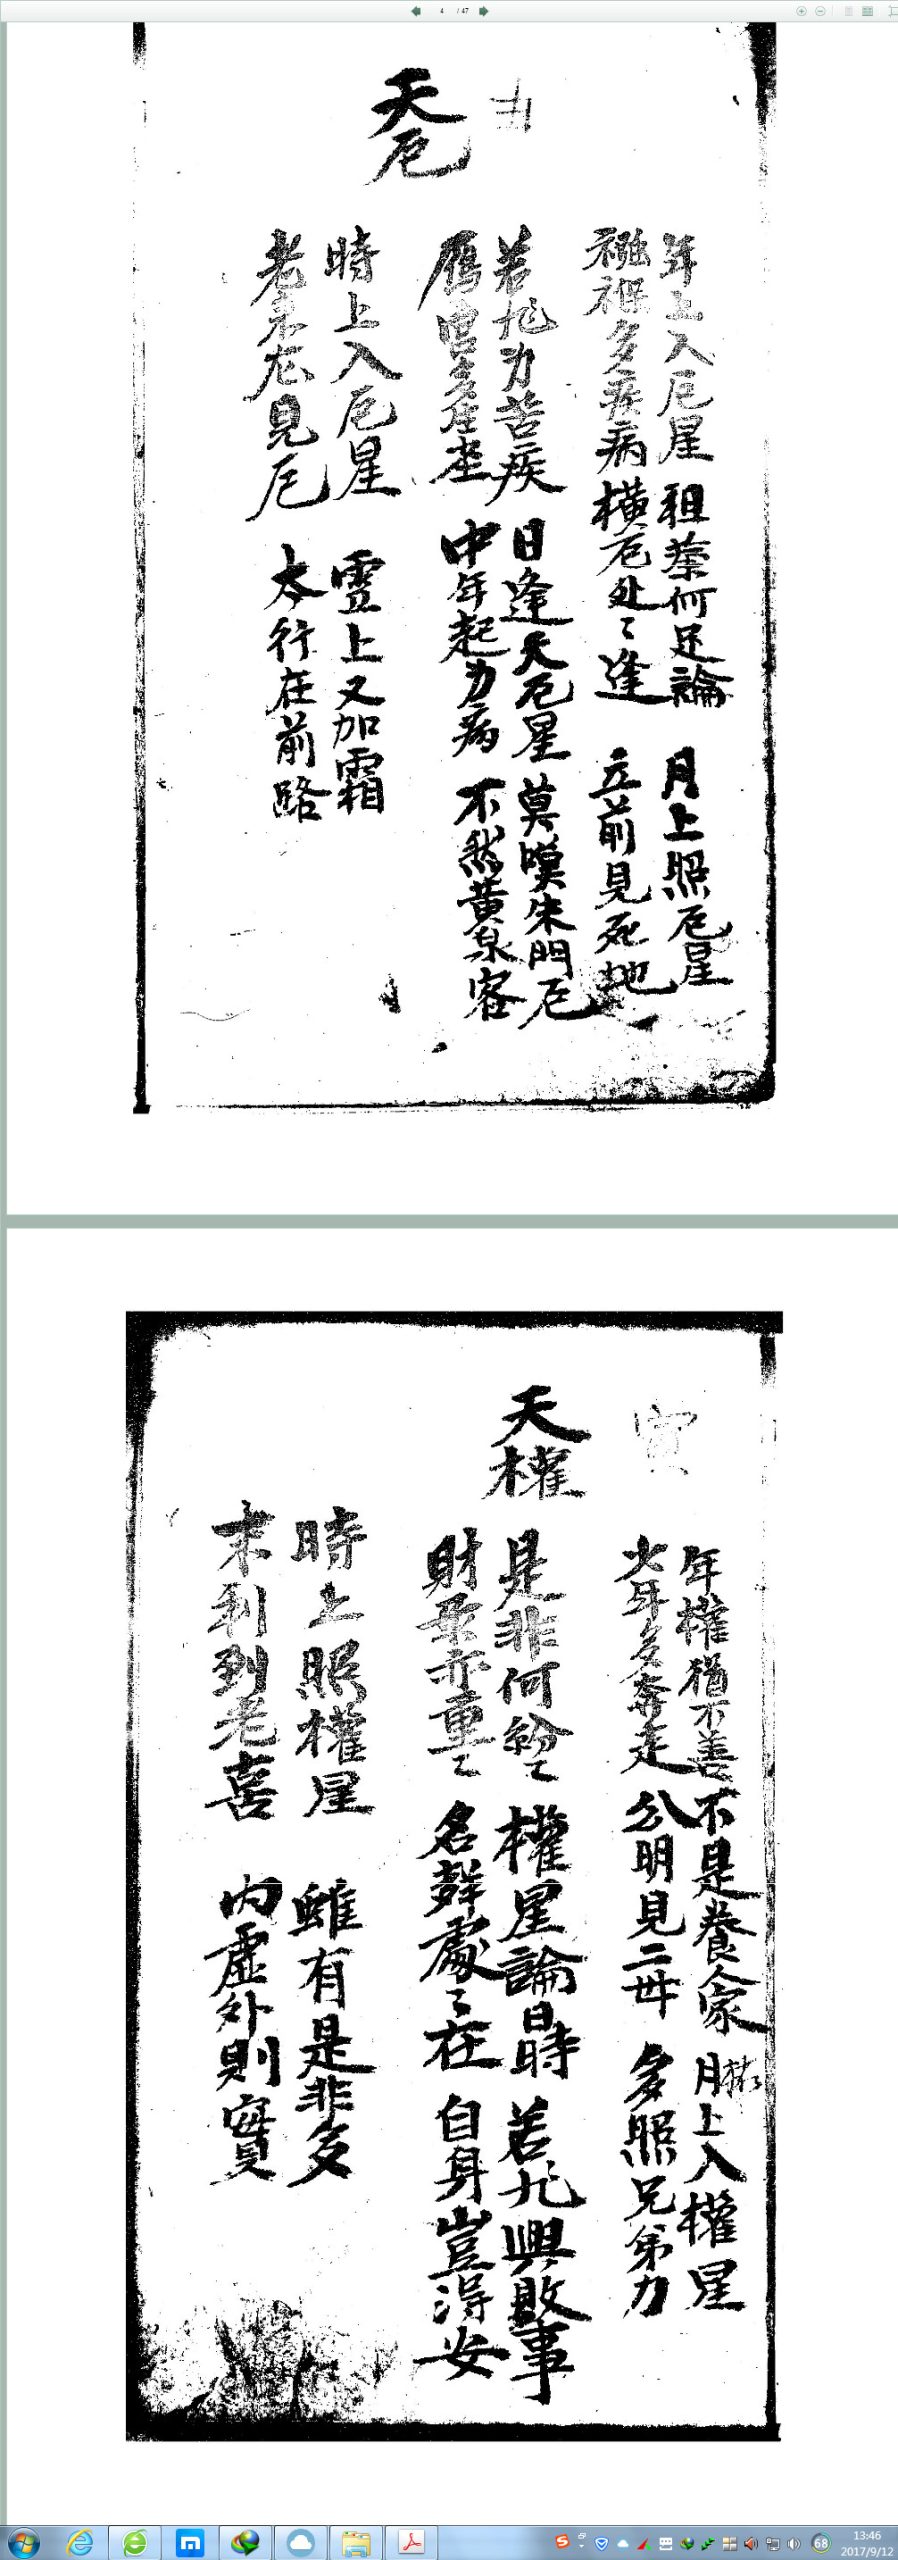 4 / 47
丑
天厄
年上入厄星 祖業何足論 月上照厄星
襁褓多疾病 橫厄处〻逢 立前見死地
若非身苦疾 日逢天厄星 莫嘆朱門厄
鴈宮多 中年起身病 不然黄泉客
時上入厄星 雪上又加霜
老来尤見厄 太行在前路
寅
天權
年權猶不善 不是養人家 月上入權星
少年多奔走 分明見二母 多照兄弟力
是非何紛〻 權星論日時 若非興敗事
財帛亦重〻 名聲處〻在 自身豈得安
時上照權星 雖有是非多
末利到老喜 內虛外則實
68
13:46
2017/9/12